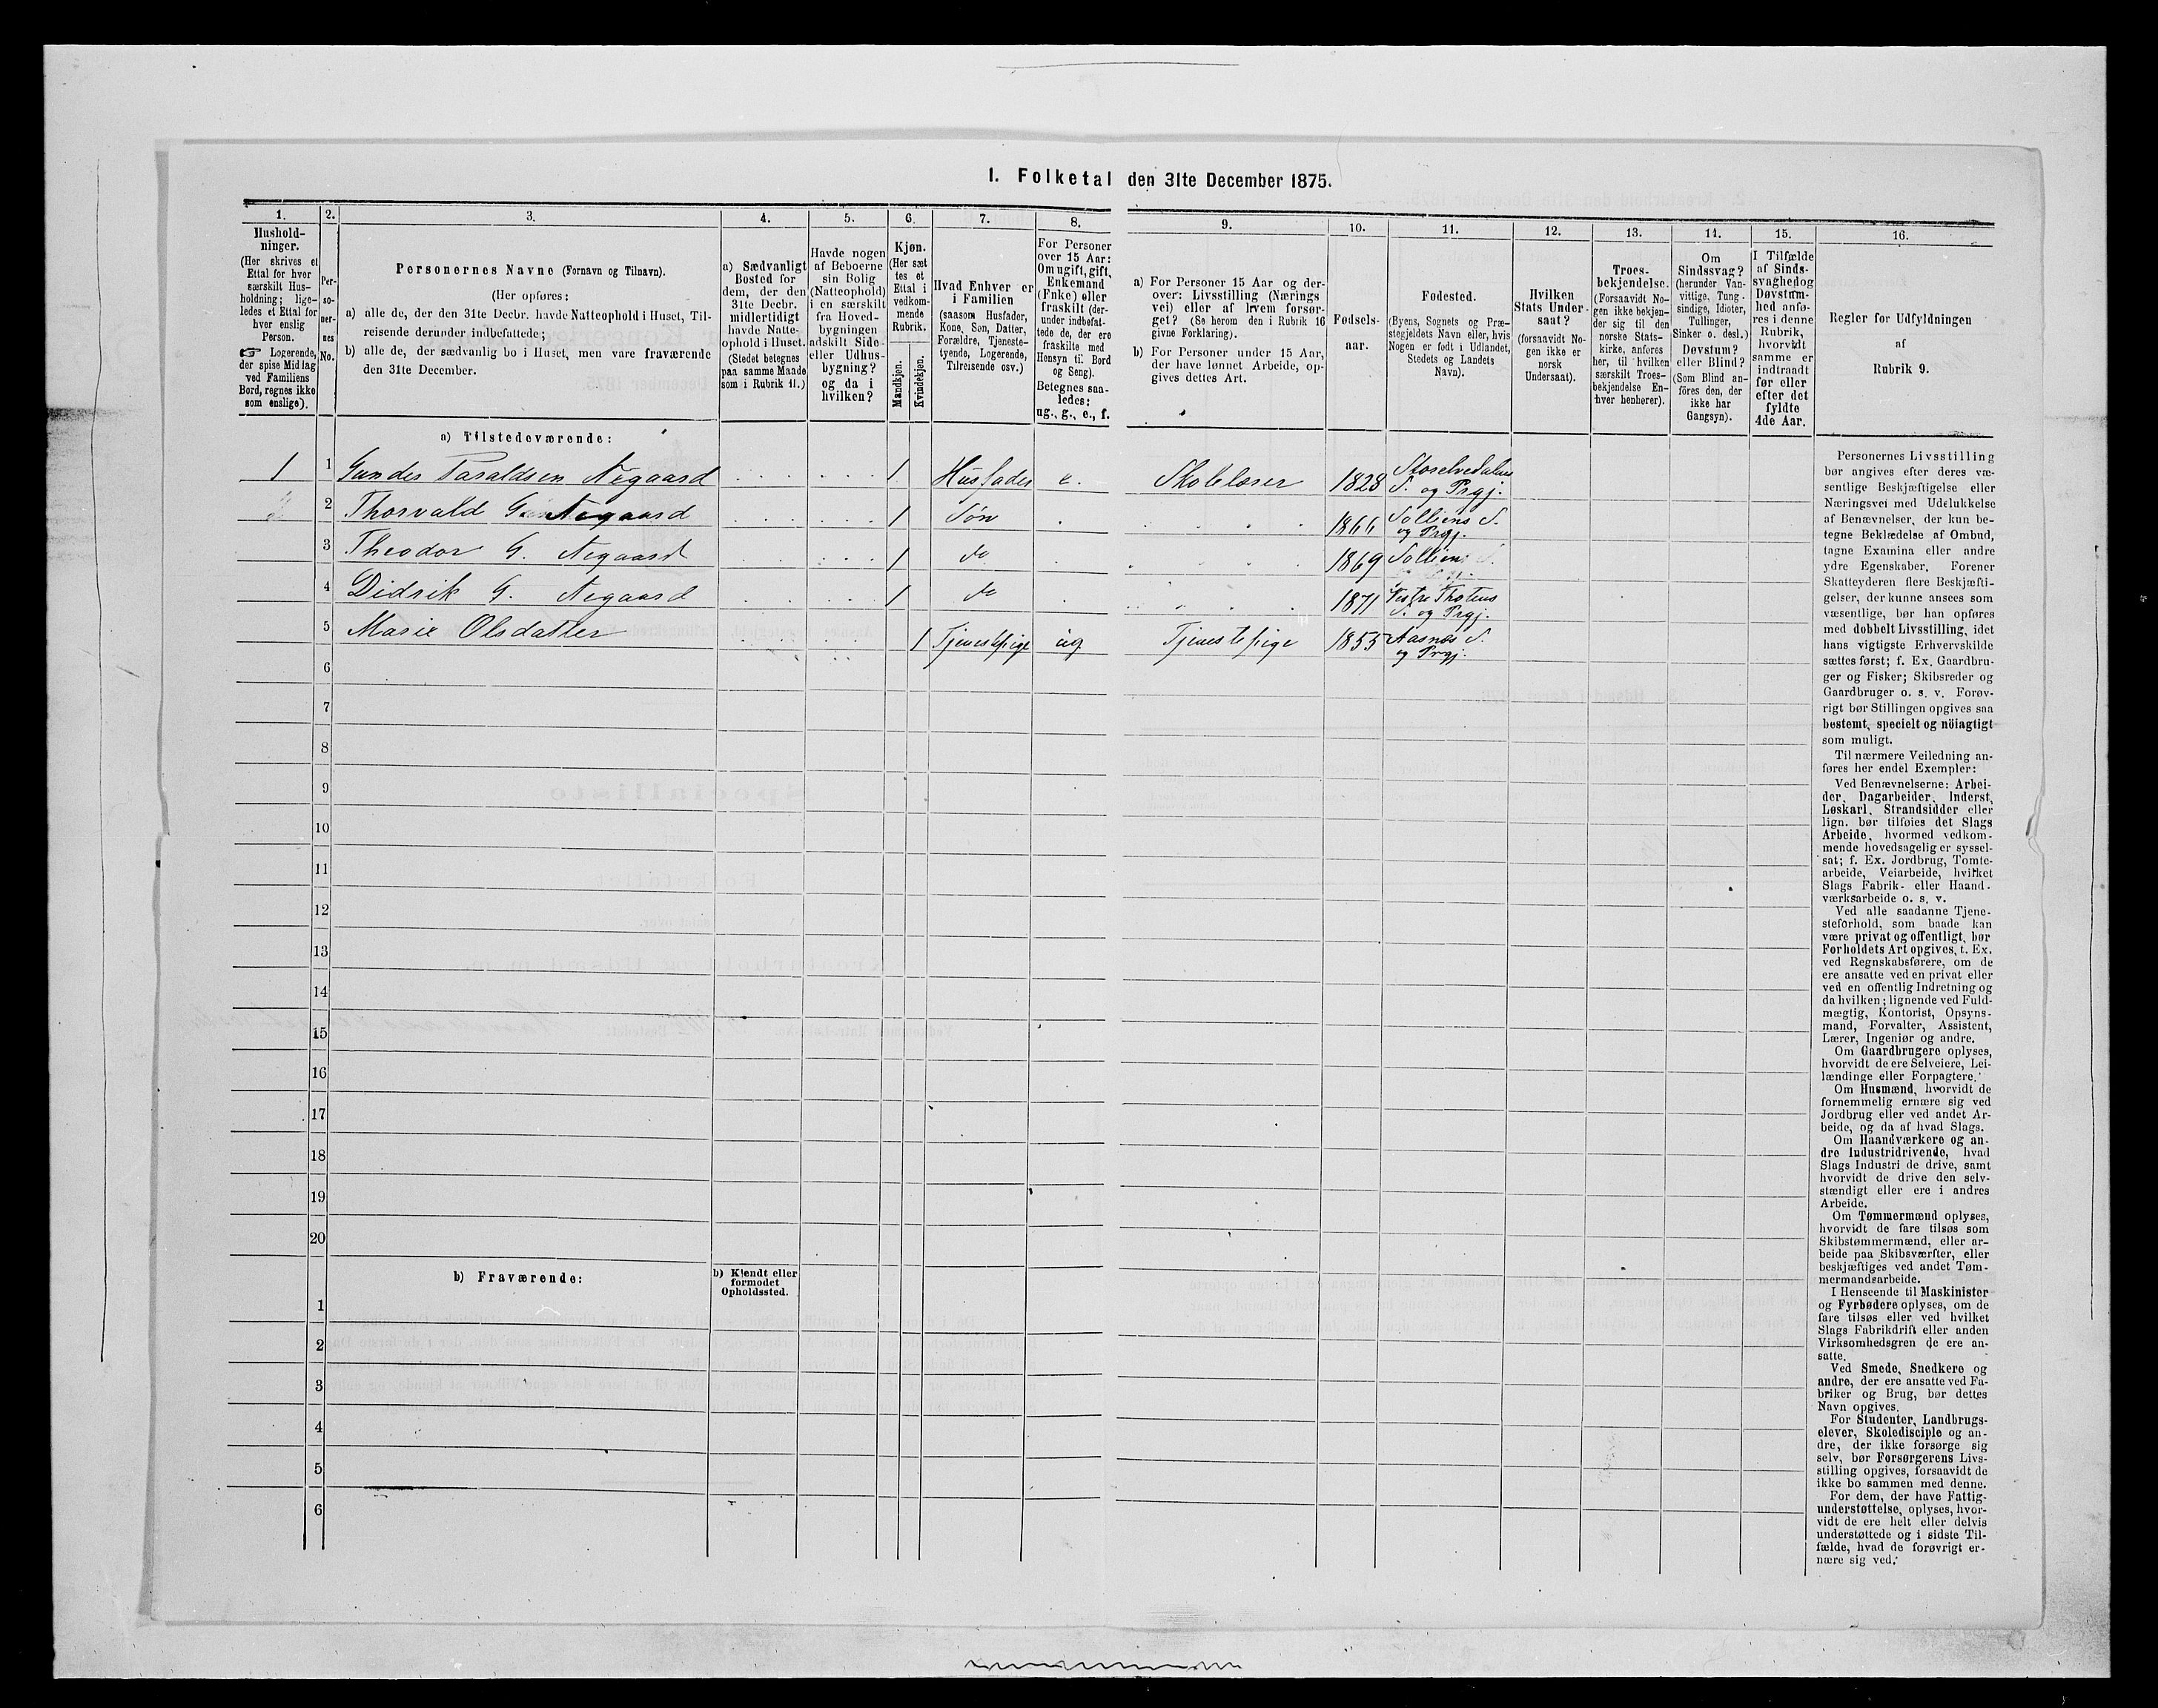 I. Folketal den 31te December 1875.
1. 2. 3. 4. 5. 6. 7. 8. 9. 10. 11. 12. 13. 14. 15. 16.
Hushold-
ninger.
(Her skrives et
Ettal for hver
særskilt Hus-
holdning; lige-
ledes et Ettal for
hver enslig
Person.
☞ Logerende,
der spise Middag
ved Familiens
Bord, regnes ikke
som enslige).
Per-
so-
ner-
nes
No.
Personernes Navne (Fornavn og Tilnavn).
(Her opføres:
a) alle de, der den 31te Decbr. havde Natteophold i Huset, Til-
reisende derunder indbefattede;
b) alle de, der sædvanlig bo i Huset, men vare fraværende
den 31te December.
a) Sædvanligt
Bosted for
dem, der den
31te Decbr.
midlertidigt
havde Natte-
ophold i Huset.
(Stedet betegnes
paa samme Maade
som i Rubrik 11.)
Havde nogen
af Beboerne
sin Bolig
(Natteophold)
i en særskilt
fra Hoved-
bygningen
adskilt Side-
eller Udhus-
bygning?
og da i
hvilken?
Kjøn.
(Her sæt
tes et
Ettal i
vedkom-
mende
Rubrik.
Mandkjøn.
Kvindekjøn.
Hvad Enhver er
i Familien
(saasom Husfader,
Kone, Søn, Datter,
Forældre, Tjeneste-
tyende, Logerende,
Tilreisende osv.)
For Personer
over 15 Aar:
Om ugift, gift,
Enkemand
(Enke) eller
fraskilt (der-
under indbefat-
tede de, der ere
fraskilte med
Hensyn til Bord
og Seng).
Betegnes saa-
ledes:
ug., g., e., f.
a) For Personer 15 Aar og der-
over: Livsstilling (Nærings
vei) eller af hvem forsør-
get? (Se herom den i Rubrik 16
givne Forklaring).
b) For Personer under 15 Aar,
der have lønnet Arbeide, op-
gives dettes Art.
Fødsels-
aar.
Fødested.
(Byens, Sognets og Præ-
stegjeldets Navn eller, hvis
Nogen er født i Udlandet,
Stedets og Landets
Navn).
Hvilken
Stats Under-
saat?
(forsaavidt No-
gen ikke er
norsk
Undersaat).
Troes-
bekjendelse.
(Forsaavidt No-
gen ikke bekjen-
der sig til den
norske Stats-
kirke, anføres
her, til hvilken
særskilt Troes-
bekjendelse En-
hver henhører).
Om
Sindssvag?
(herunder Van-
vittige, Tung-
sindige, Idioter,
Tullinger,
Sinker o. desl.)
Døvstum?
eller Blind?
(Som Blind an-
føres den, der
ikke har
Gangsyn).
I Tilfælde
af Sinds-
svaghed og
Døvstum-
hed anfø-
res i denne
Rubrik,
hvorvidt
samme er
indtraadt
før eller
efter det
fyldte
4de Aar.
Regler for Udfyldningen
af
Rubrik 9.
a) Tilstedeværende:
1 1 Gunder Taraldsen Aegaard 1 Husfader e. Skolelærer 1828 Storelvedalens S. og Prgj.
2 Thorvald G. Aegaard 1 Søn 1866 Solliens S. og Prgj.
3 Theodor G. Aegaard 1 do 1869 Solliens S.
4 Didrik G. Aegaard 1 do 1871 Vestre Thotens S. og Prgj.
5 Marie Olsdatter 1 Tjenestepige ug Tjenestepige 1853 Aasnes S. og Prgj.
6
7
8
9
10
11
12
13
14
15
16
17
18
19
20
b) Fraværende:
b) Kjendt eller
formodet
Opholdssted.
1
2
3
4
5
6
Personernes Livsstilling
bør angives efter deres væ-
sentlige Beskjæftigelse eller
Næringsvei med Udelukkelse
af Benævnelser, der kun be-
tegne Beklædelse af Ombud,
tagne Examina eller andre
ydre Egenskaber. Forener
Skatteyderen flere Beskjæfti-
gelser, der kunne ansees som
væsentlige, bør han opføres
med dobbelt Livsstilling, idet
hans vigtigste Erhvervskilde
sættes først; f. Ex. Gaardbru-
ger og Fisker; Skibsreder og
Gaardbruger o. s. v. Forøv-
rigt bør Stillingen opgives saa
bestemt, specielt og nöiagtigt
som muligt.
Til nærmere Veiledning an-
føres her endel Exempler:
Ved Benævnelserne: Arbei-
der, Dagarbeider, Inderst,
Løskarl, Strandsidder eller
lign. bør tilføies det Slags
Arbeide, hvormed vedkom-
mende hovedsagelig er syssel-
sat; f. Ex. Jordbrug, Tomte-
arbeide, Veiarbeide, hvilket
Slags Fabrik- eller Haand-
værksarbeide o. s. v.
Ved alle saadanne Tjene-
steforhold, som baade kan
være privat og offentligt, bør
Forholdets Art opgives, t. Ex.
ved Regnskabsførere, om de
ere ansatte ved en privat eller
ved en offentlig Indretning og
da hvilken; lignende ved Fuld-
mægtig, Kontorist, Opsyns-
mand, Forvalter, Assistent,
Lærer, Ingeniør og andre.
Om Gaardbrugere oplyses,
hvorvidt de ere Selveiere, Lei-
lændinge eller Forpagtere.
Om Husmænd, hvorvidt de
fornemmelig ernære sig ved
Jordbrug eller ved andet Ar-
beide, og da af hvad Slags.
Om Haandværkere og an-
dre Industridrivende, hvad
Slags Industri de drive, samt
hvorvidt de drive den selv-
stændigt eller ere i andres
Arbeide.
Om Tømmermænd oplyses,
hvorvidt de fare tilsøs som
Skibstømmermænd, eller ar-
beide paa Skibsværfter, eller
beskjæftiges ved andet Tøm-
mermandsarbeide.
I Henseende til Maskinister
og Fyrbødere oplyses, om de
fare tilsøs eller ved hvilket
Slags Fabrikdrift eller anden
Virksomhedsgren de ere an-
satte.
Ved Smede, Snedkere og
andre, der ere ansatte ved Fa-
briker og Brug, bør dettes
Navn opgives.
For Studenter, Landbrugs-
elever, Skoledisciple og an-
dre, der ikke forsørge sig
selv, bør Forsørgerens Livs-
stilling opgives, forsaavidt de
ikke bo sammen med denne.
For dem, der have Fattig-
understøttelse, oplyses, hvor-
vidt de ere helt eller delvis
understøttede og i sidste Til-
fælde, hvad de forøvrigt er-
nære sig ved.